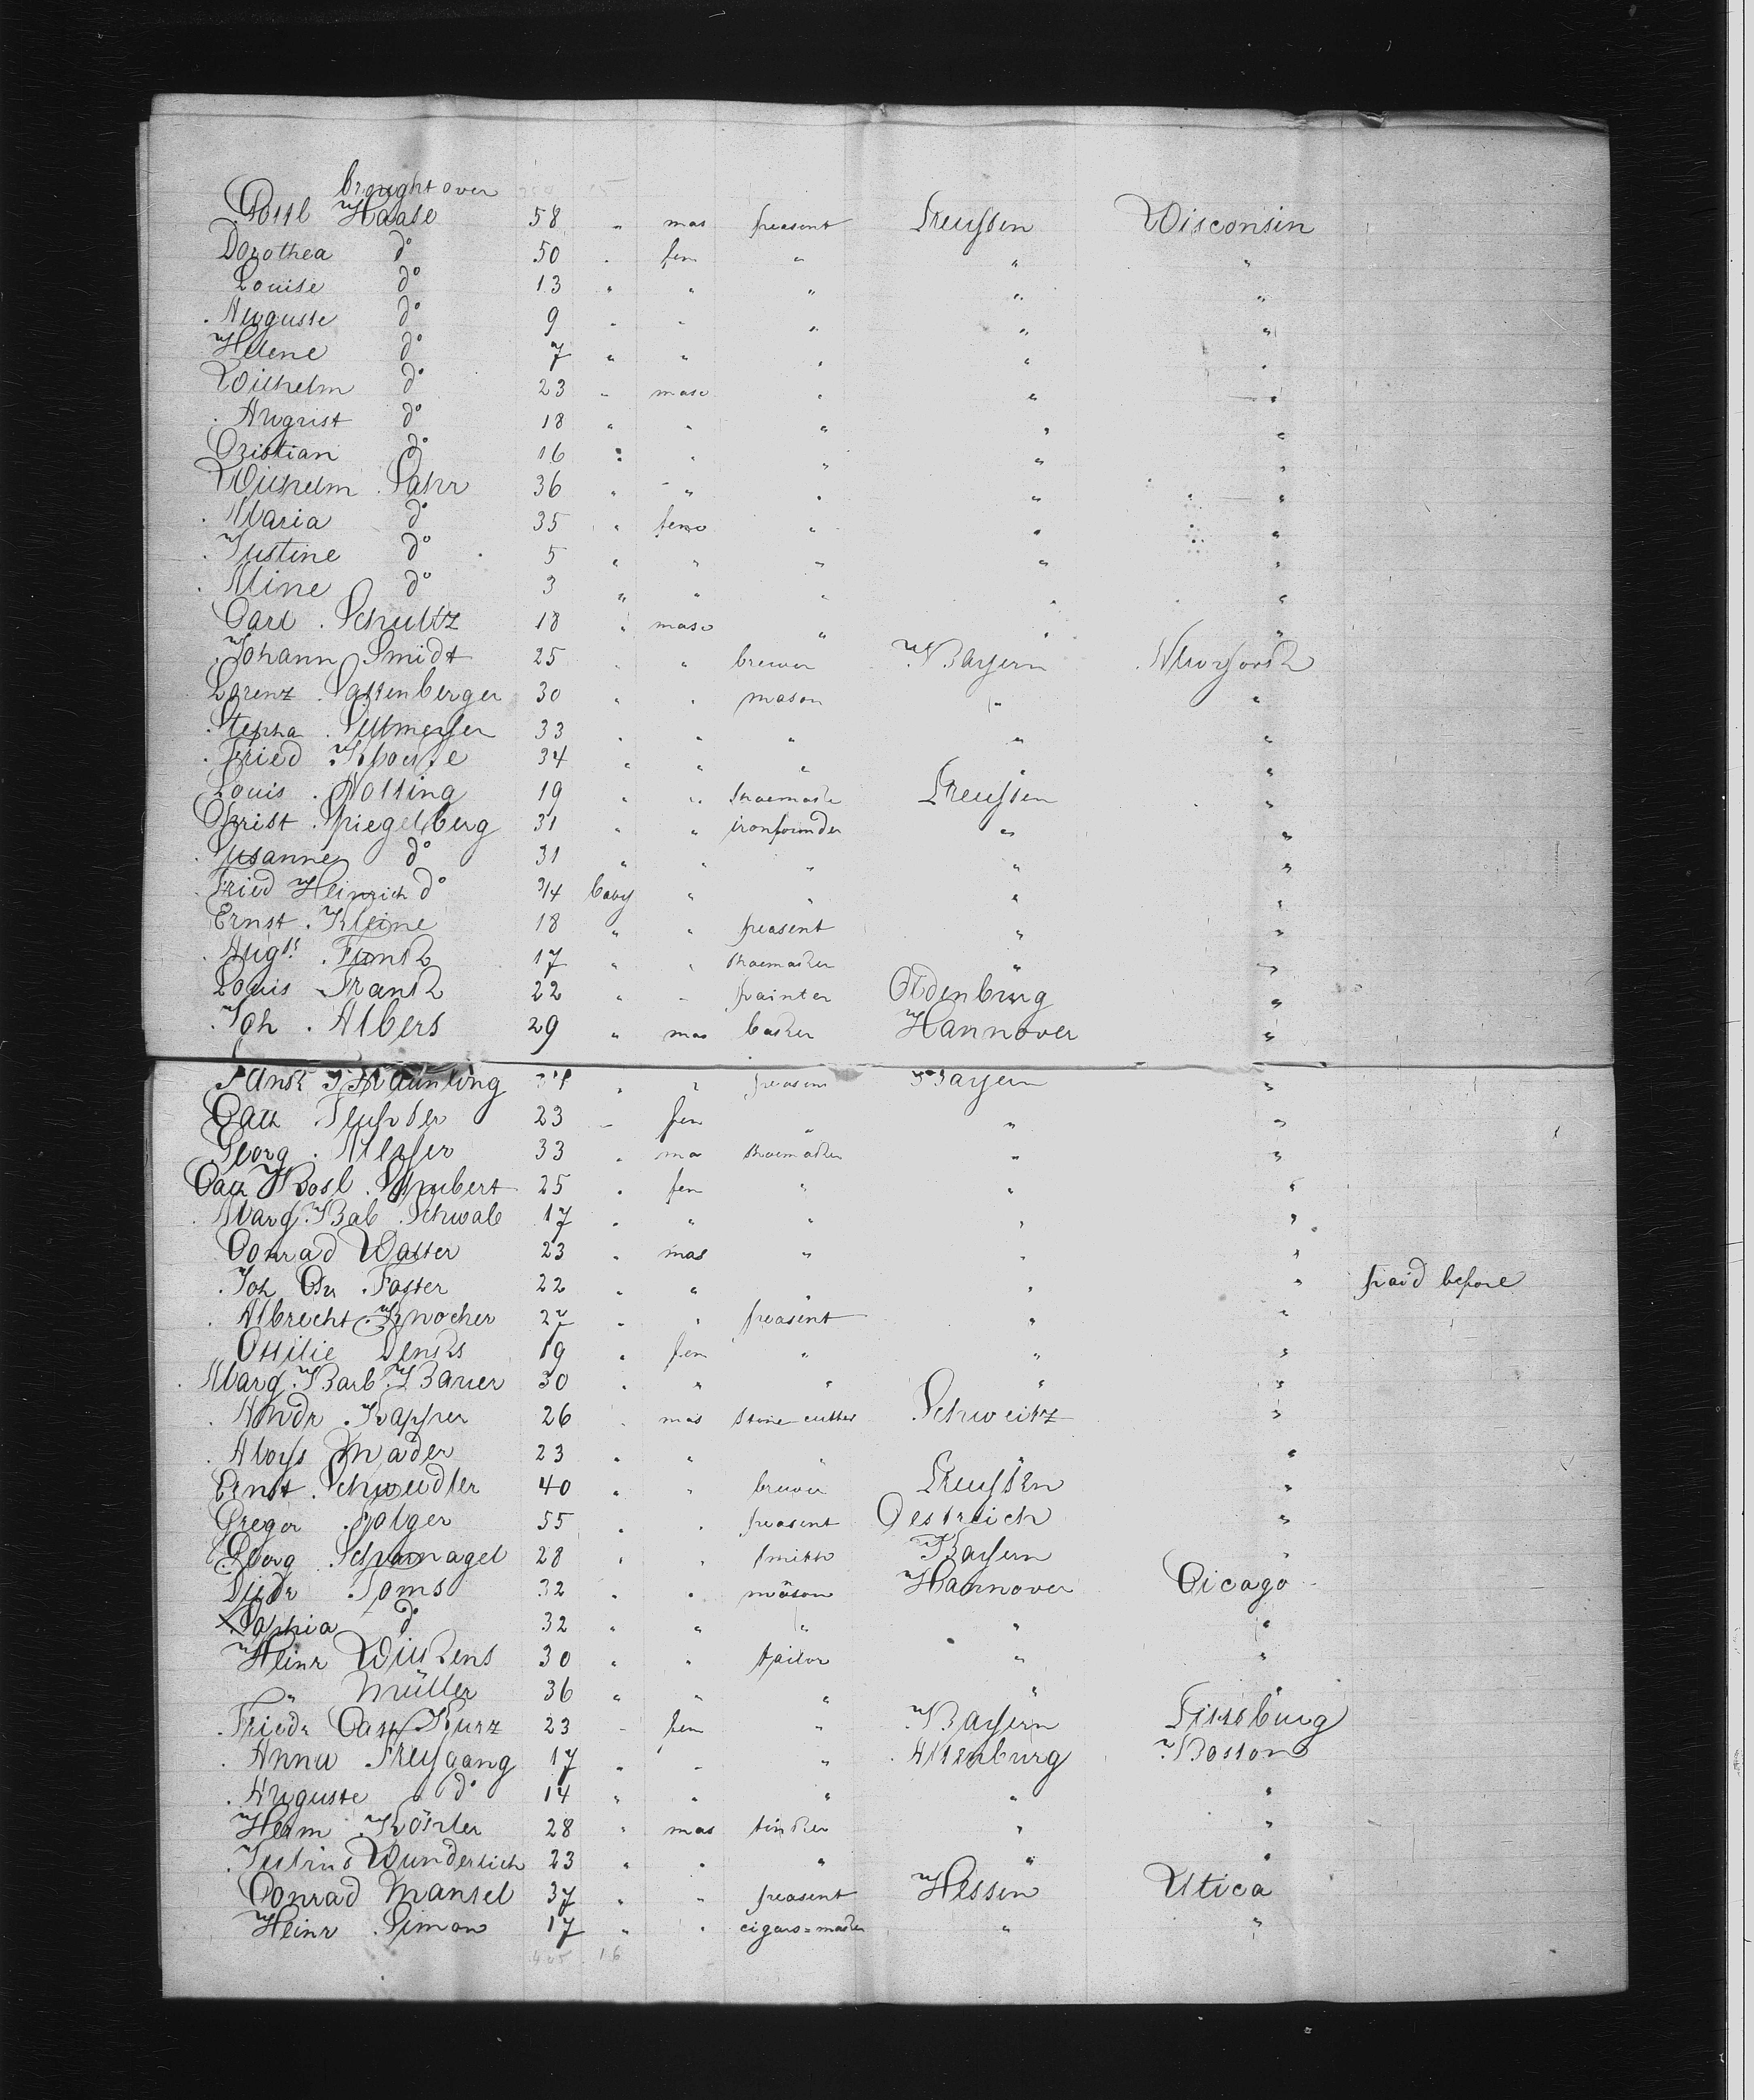 brought over
Gottl Haase 58 " mas peasent Preussen Wisconsin
Dorothea do 50 " fem " " "
Louise do 13 " " " " "
Auguste do 9 " " " " "
Helene do 7 " " " " "
Wilhelm do 23 " masc " " "
August do 18 " " " " "
Cristian do 16 " " " " "
Wilhelm Pahr 36 " " " " "
Maria do 35 " feme " " "
Justine do 5 " " " " "
Mine do 3 " " " " "
Carl Schultz 18 " masc " " "
Johann Smidt 25 " " brewer Bayern Newyork
Lorenz Sassenberger 30 " " mason " "
Stepha 33 " " " " "
Fried 34 " " " " "
Louis Nolting 19 " " shoemake Preussen "
Christ Spiegelberg 31 " " ironfounder " "
Susanne do 31 " " " " "
Fried Heinrich do 3/4 baby " " " "
Ernst Kleine 18 " " peasent " "
Augst Funk 17 " " shoemaker " "
Louis Frank 22 " " painter Oldenburg "
Joh Albers 29 " mas baker Hannover "
" " peasent Bayern "
Cath 23 " fem " " "
Georg Meyer 33 " ma shoemaker " "
Cath Rosl Schubert 25 " fem " " "
Marg Bab Schwab 17 " " " " "
Conrad Walter 23 " mas " " "
Joh Chr Faster 22 " " " " " paid before
Albrecht Knocher 27 " " peasent " "
Ottilie Denks 19 " fem " " "
Marg Barb Bauer 30 " " " " "
Andr Kapper 26 " mas stone-cutter Schweitz "
Aloys Mader 23 " " " " "
Ernst Schwedler 40 " " brewer Preussen "
Gregor 55 " " peasent Oestreich "
Georg 28 " " smitt Bayern "
Diedr Toms 32 " " mason Hannover Cicago
Sophia do 32 " " " " "
Heinr Wilkens 30 " " tailor " "
" Müller 36 " " " " "
Friedr Casp Kurz 23 " fem " Bayern Pittsburg
Anna Freygang 17 " " " Altenburg Boston
Auguste do 14 " " " " "
Herm Köhler 28 " mas tinker " "
Julius Wunderlich 23 " " " " "
Conrad Mansel 37 " " peasent Hessen Utica
Heinr Simon 17 " " cigars=maker " "
405 16